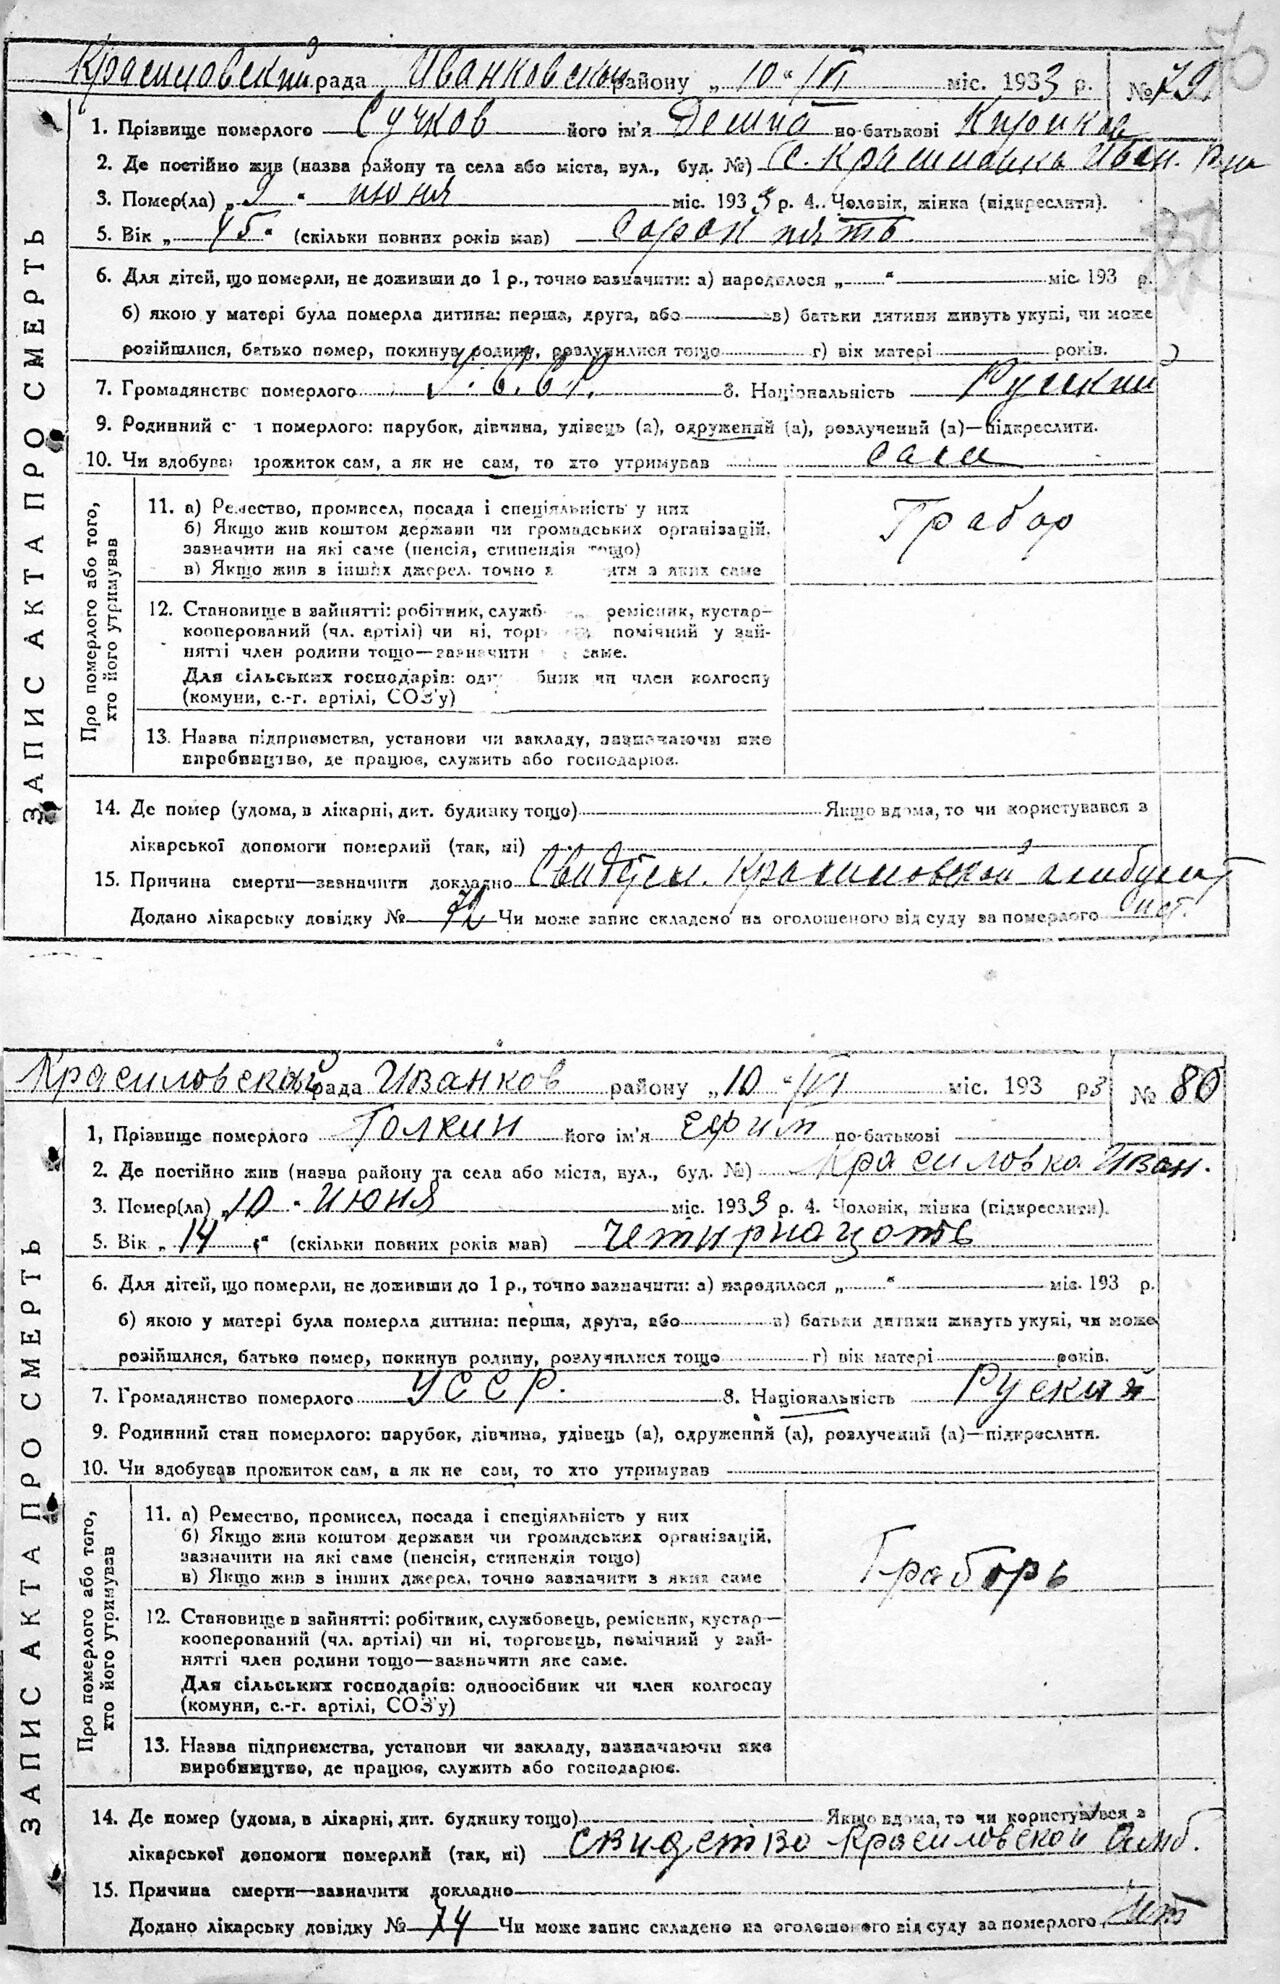 70
Красиловский рада Иванковский району „ 10 " VI міс. 1933 р. № 79
1. Прізвище померлого Сучков його ім'я Демид по-батькові
2. Де постійно жив (назва району та села або міста, вул., буд. №) с. Красиловка Иван. р-на
3. Помер(ла) „ 9 " июня міс. 1933 р. 4. Чоловік, жінка (підкреслити).
5. Вік „ 45 " (скільки повних років мав) Сорок пять
6. Для дітей, що померли, не доживши до 1 р., точно зазначити: а) народилося „ " міс. 193 р.
б) якою у матері була померла дитина: перша, друга, або в) батьки дитини живуть укупі, чи може
розійшлися, батько помер, покинув родину, розлучилися тощо г) вік матері років.
7. Громадянство померлого У.С.С.Р. 8. Національність Руский
9. Родинний с і померлого: парубок, дівчина, удівець (а), одружений (а), розлучений (а)—підкреслити.
10. Чи здобува прожиток сам, а як не сам, то хто утримував сам
ЗАПИС АКТА ПРО СМЕРТЬ
Про померлого або того, хто його утримував
11. а) Ремество, промисел, посада і спеціяльність у них
б) Якщо жив коштом держави чи громадських організацій,
зазначити на які саме (пенсія, стипендія тощо)
в) Якщо жив з інших джерел, точно з ити з яких саме
Грабор
12. Становище в занятті: робітник, служб ремісник, кустар—
кооперований (чл. артілі) чи ні, торг помічний у зай-
нятті член родини тощо—зазначити саме.
Для сільських господарів: од бник чи член колгоспу
(комуни, с.-г. артілі, СОЗ'у)
13. Назва підприємства, установи чи закладу, зазначаючи яке
виробництво, де працює, служить або господарює.
14. Де помер (удома, в лікарні, дит. будинку тощо) Якщо вдома, то чи користувався з
лікарської допомоги померлий (так, ні)
15. Причина смерти—зазначити докладно Свидетел. Красиловской амбулат
Додано лікарську довідку № 72 Чи може запис складено на оголошеного від суду за померлого нет.
Красиловский рада Иванков району „ 10 " VI міс. 193 р3 № 80
1, Прізвище померлого Голкин його ім'я Ефим по-батькові
2. Де постійно жив (назва району та села або міста, вул., буд. №) Красиловка Иван.
3. Помер(ла) „ 10 " Июня міс. 1933 р. 4. Чоловік, жінка (підкреслити).
5. Вік „ 14 " (скільки повних років мав) Четырнацоть
6. Для дітей, що померли, не доживши до 1 р., точно зазначити: а) народилося „ " міс. 193 р.
б) якою у матері була померла дитина: перша, друга, або в) батьки дитини живуть укупі, чи може
розійшлися, батько помер, покинув родину, розлучилися тощо г) вік матері років.
7. Громадянство померлого УССР. 8. Національність Руский
9. Родинний стан померлого: парубок, дівчина, удівець (а), одружений (а), розлучений (а)—підкреслити.
10. Чи здобував прожиток сам, а як не сам, то хто утримував
ЗАПИС АКТА ПРО СМЕРТЬ
Про померлого або того, хто його утримував
11. а) Ремество, промисел, посада і спеціяльність у них
б) Якщо жив коштом держави чи громадських організацій,
зазначити на які саме (пенсія, стипендія тощо)
в) Якщо жив з інших джерел, точно зазначити з яких саме
Граборь
12. Становище в зайнятті: робітник, службовець, ремісник, кустар—
кооперований (чл. артілі) чи ні, торговець, помічний у зай-
нятті член родини тощо—зазначити яке саме.
Для сільських господарів: одноосібник чи член колгоспу
(комуни, с.-г. артілі, СОЗ'у)
13. Назва підприємства, установи чи закладу, зазначаючи яке
виробництво, де працює, служить або господарює.
14. Де помер (удома, в лікарні, дит. будинку тощо) Якщо вдома, то чи користувався з
лікарської допомоги померлий (так, ні) свидетство Красиловской Амб.
15. Причина смерти—зазначити докладно
Додано лікарську довідку № 74 Чи може запис складено на оголошеного від суду за померлого нет